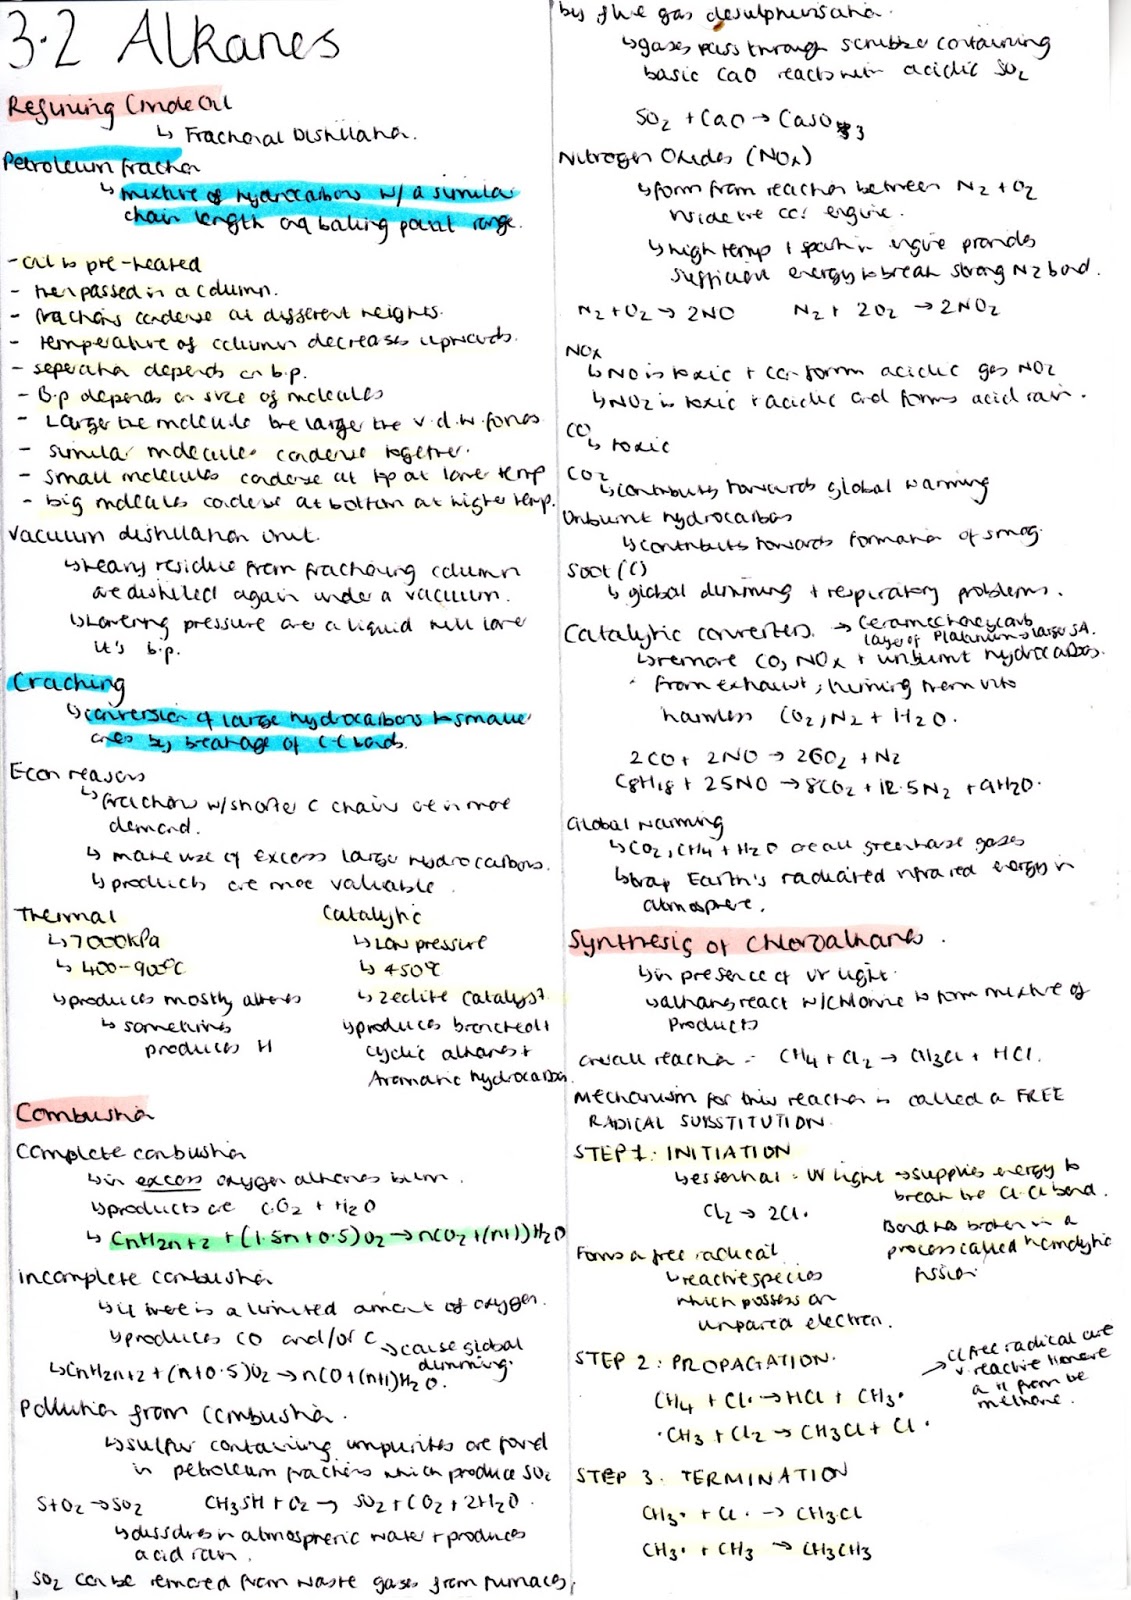 3.2 Alkanes
Refining Crude Oil
↳ Fractional Distillation.
Petroleum fraction
↳ mixture of hydrocarbons w/ a similar
chain length and boiling point range.
- oil is pre-heated
- then passed in a column.
- fractions condense at different heights.
- temperature of column decreases upwards.
- seperation depends on b.p.
- B.p depends on size of molecules
- Larger the molecule the larger the v.d.w. forces
- similar molecules condense together.
- small molecules condense at top at lower temp
- big molecules condense at bottom at higher temp.
Vacuum distillation unit.
↳ heavy residue from fractioning column
are distilled again under a vacuum.
↳ Lowering pressure over a liquid will lower
it's b.p.
Cracking
↳ conversion of large hydrocarbons to smaller
ones by breakage of C-C bonds.
Econ reasons
↳ fractions w/ shorter C chains are in more
demand.
↳ make use of excess larger hydrocarbons.
↳ products are more valuable.
Thermal
↳ 7000kPa
↳ 400-900°C
↳ produces mostly alkenes
↳ sometimes
produces H
Catalytic
↳ Low pressure
↳ 450°C
↳ zeolite catalyst.
↳ produces branched +
cyclic alkanes +
Aromatic hydrocarbons
Combustion
Complete combustion
↳ in excess oxygen alkanes burn.
↳ products are CO2 + H2O
↳ CnH2n+2 + (1.5n+0.5)O2 → nCO2 + (n+1)H2O
incomplete combustion
↳ if there is a limited amount of oxygen.
↳ produces CO and/or C → cause global
dimming.
↳ CnH2n+2 + (n+0.5)O2 → nCO + (n+1)H2O.
Pollution from combustion.
↳ sulfur containing impurities are found
in petroleum fractions which produce SO2
S+O2 → SO2 CH3SH + O2 → SO2 + CO2 + 2H2O.
↳ dissolves in atmospheric water + produces
acid rain.
SO2 can be removed from waste gases from furnaces,
by flue gas desulphurisation.
↳ gases pass through scrubber containing
basic CaO reacts with acidic SO2
SO2 + CaO → CaSO3
Nitrogen Oxides (NOx)
↳ form from reaction between N2 + O2
inside the car engine.
↳ high temp + spark in engine provides
sufficient energy to break strong N2 bond.
N2+O2 → 2NO N2 + 2O2 → 2NO2
NOx
↳ NO is toxic + can form acidic gas NO2
↳ NO2 is toxic + acidic and forms acid rain.
CO
↳ toxic
CO2
↳ contributes towards global warming
Unburnt hydrocarbons
↳ contributes towards formation of smog.
Soot (C)
↳ global dimming + respiratory problems.
Catalytic converters. → Ceramic honeycomb
layer of Platinum → large S.A.
↳ remove CO, NOx + unburnt hydrocarbons.
from exhaust, turning them into
harmless CO2, N2 + H2O.
2CO + 2NO → 2CO2 + N2
C8H18 + 25NO → 8CO2 + 12.5N2 + 9H2O.
Global warming
↳ CO2, CH4 + H2O are all greenhouse gases
↳ trap Earth's radiated infrared energy in
atmosphere.
Synthesis of Chloroalkanes.
↳ in presence of UV light.
↳ alkanes react w/ chlorine to form mixture of
products
Overall reaction - CH4 + Cl2 → CH3Cl + HCl.
Mechanism for this reaction is called a FREE
RADICAL SUBSTITUTION.
STEP 1: INITIATION
↳ essential - UV light → supplies energy to
break the Cl-Cl bond.
Cl2 → 2Cl•
Bond has broken in a
process called hemolytic
fission.
Forms a free radical
↳ reactive species
which possess an
unpaired electron.
STEP 2: PROPAGATION.
→ Cl free radical are
v. reactive + remove
a H from the
methane.
CH4 + Cl• → HCl + CH3•
•CH3 + Cl2 → CH3Cl + Cl•
STEP 3. TERMINATION
CH3• + Cl• → CH3Cl
CH3• + CH3 → CH3CH3